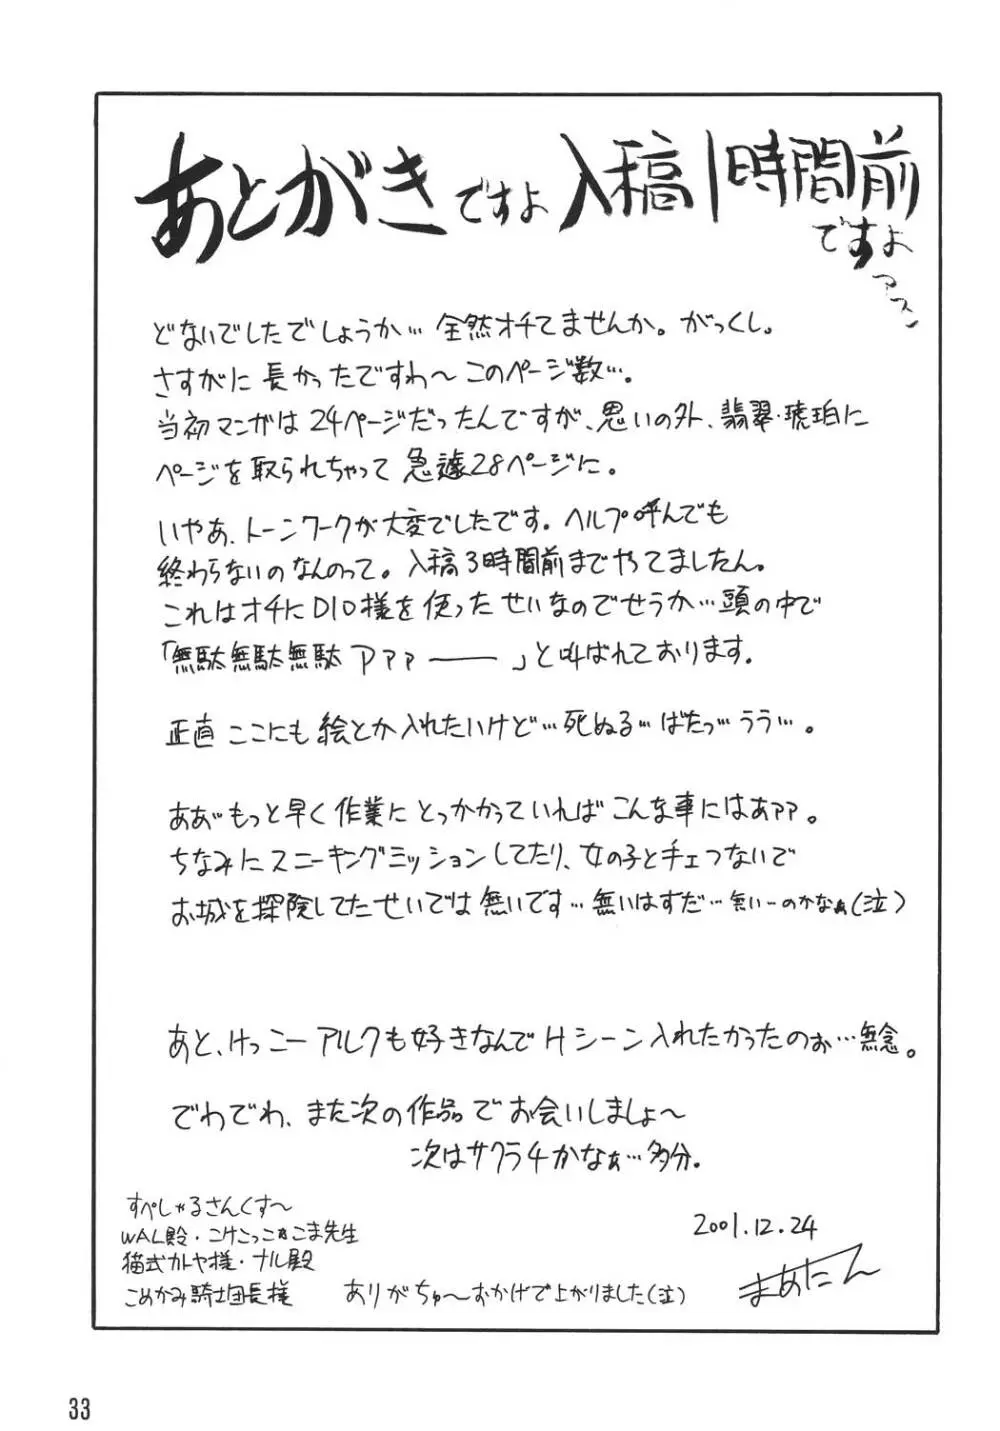 あとがきですよ 入稿1時間前
ですよ
アスン
どないでしたでしょうか… 全然オチてませんか。がっくし。
さすがに長かったですわ〜このページ数…。
当初マンガは24ページだったんですが、思いの外、翡翠・琥珀に
ページを取られちゃって急遽28ページに。
いやぁ、トーンワークが大変でしたです。ヘルプ呼んでも
終わらないのなんのって。入稿3時間前までやってましたん。
これはオチにDIO様を使ったせいなのでせうか…頭の中で
「無駄無駄無駄アァァ――」と叫ばれております。
正直ここにも絵とか入れたいけど…死ぬる…ばたっ…うう…。
ああ…もっと早く作業にとっかかっていればこんな事にはあァァ。
ちなみにスニーキングミッションしてたり、女の子と手ェつないで
お城を探険してたせいでは無いです…無いはずだ…無い―のかなぁ(泣)
あと、けっこーアルクも好きなんでHシーン入れたかったのぉ…無念。
でわでわ、また次の作品でお会いしましょ〜
次はサクラ4かなぁ…多分。
すぺしゃるさんくす〜
WAL殿・こけこっこ☆こま先生
猫式カトヤ様・ナル殿
こめかみ騎士団長様 ありがちゅ〜おかげで上がりました(泣)
2001.12.24
まあたん
33